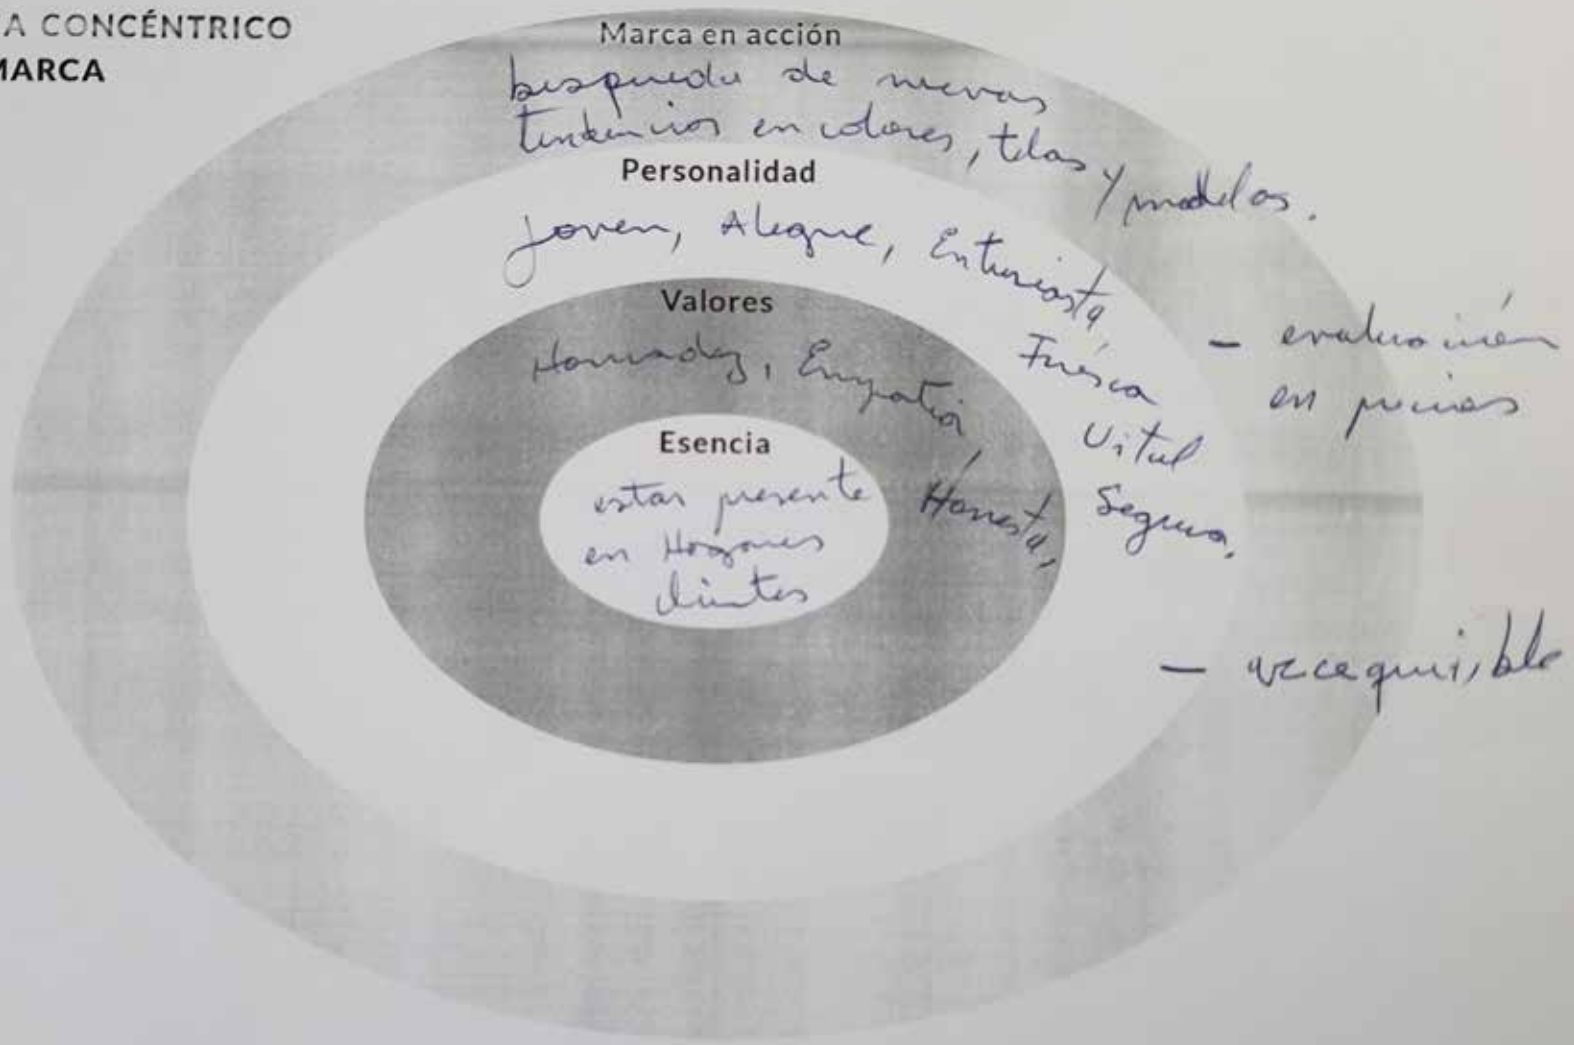 A CONCÉNTRICO
MARCA
Marca en acción
busqueda de nuevas
tendencias en colores, telas y modelos.
Personalidad
Joven, Alegre, Entusiasta,
Fresca
Vital
Segura.
Valores
Honradez, Empatia,
Honesta,
Esencia
estar presente
en Hogares
clientes
- evaluación
en precios
- accequible